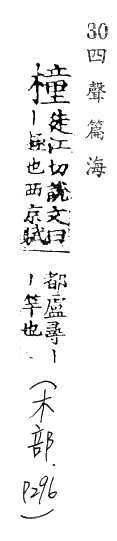 30 四聲篇海
橦
徒江切說文曰
｜
也西京賦
都盧尋｜
｜竿也
(木部. P296)